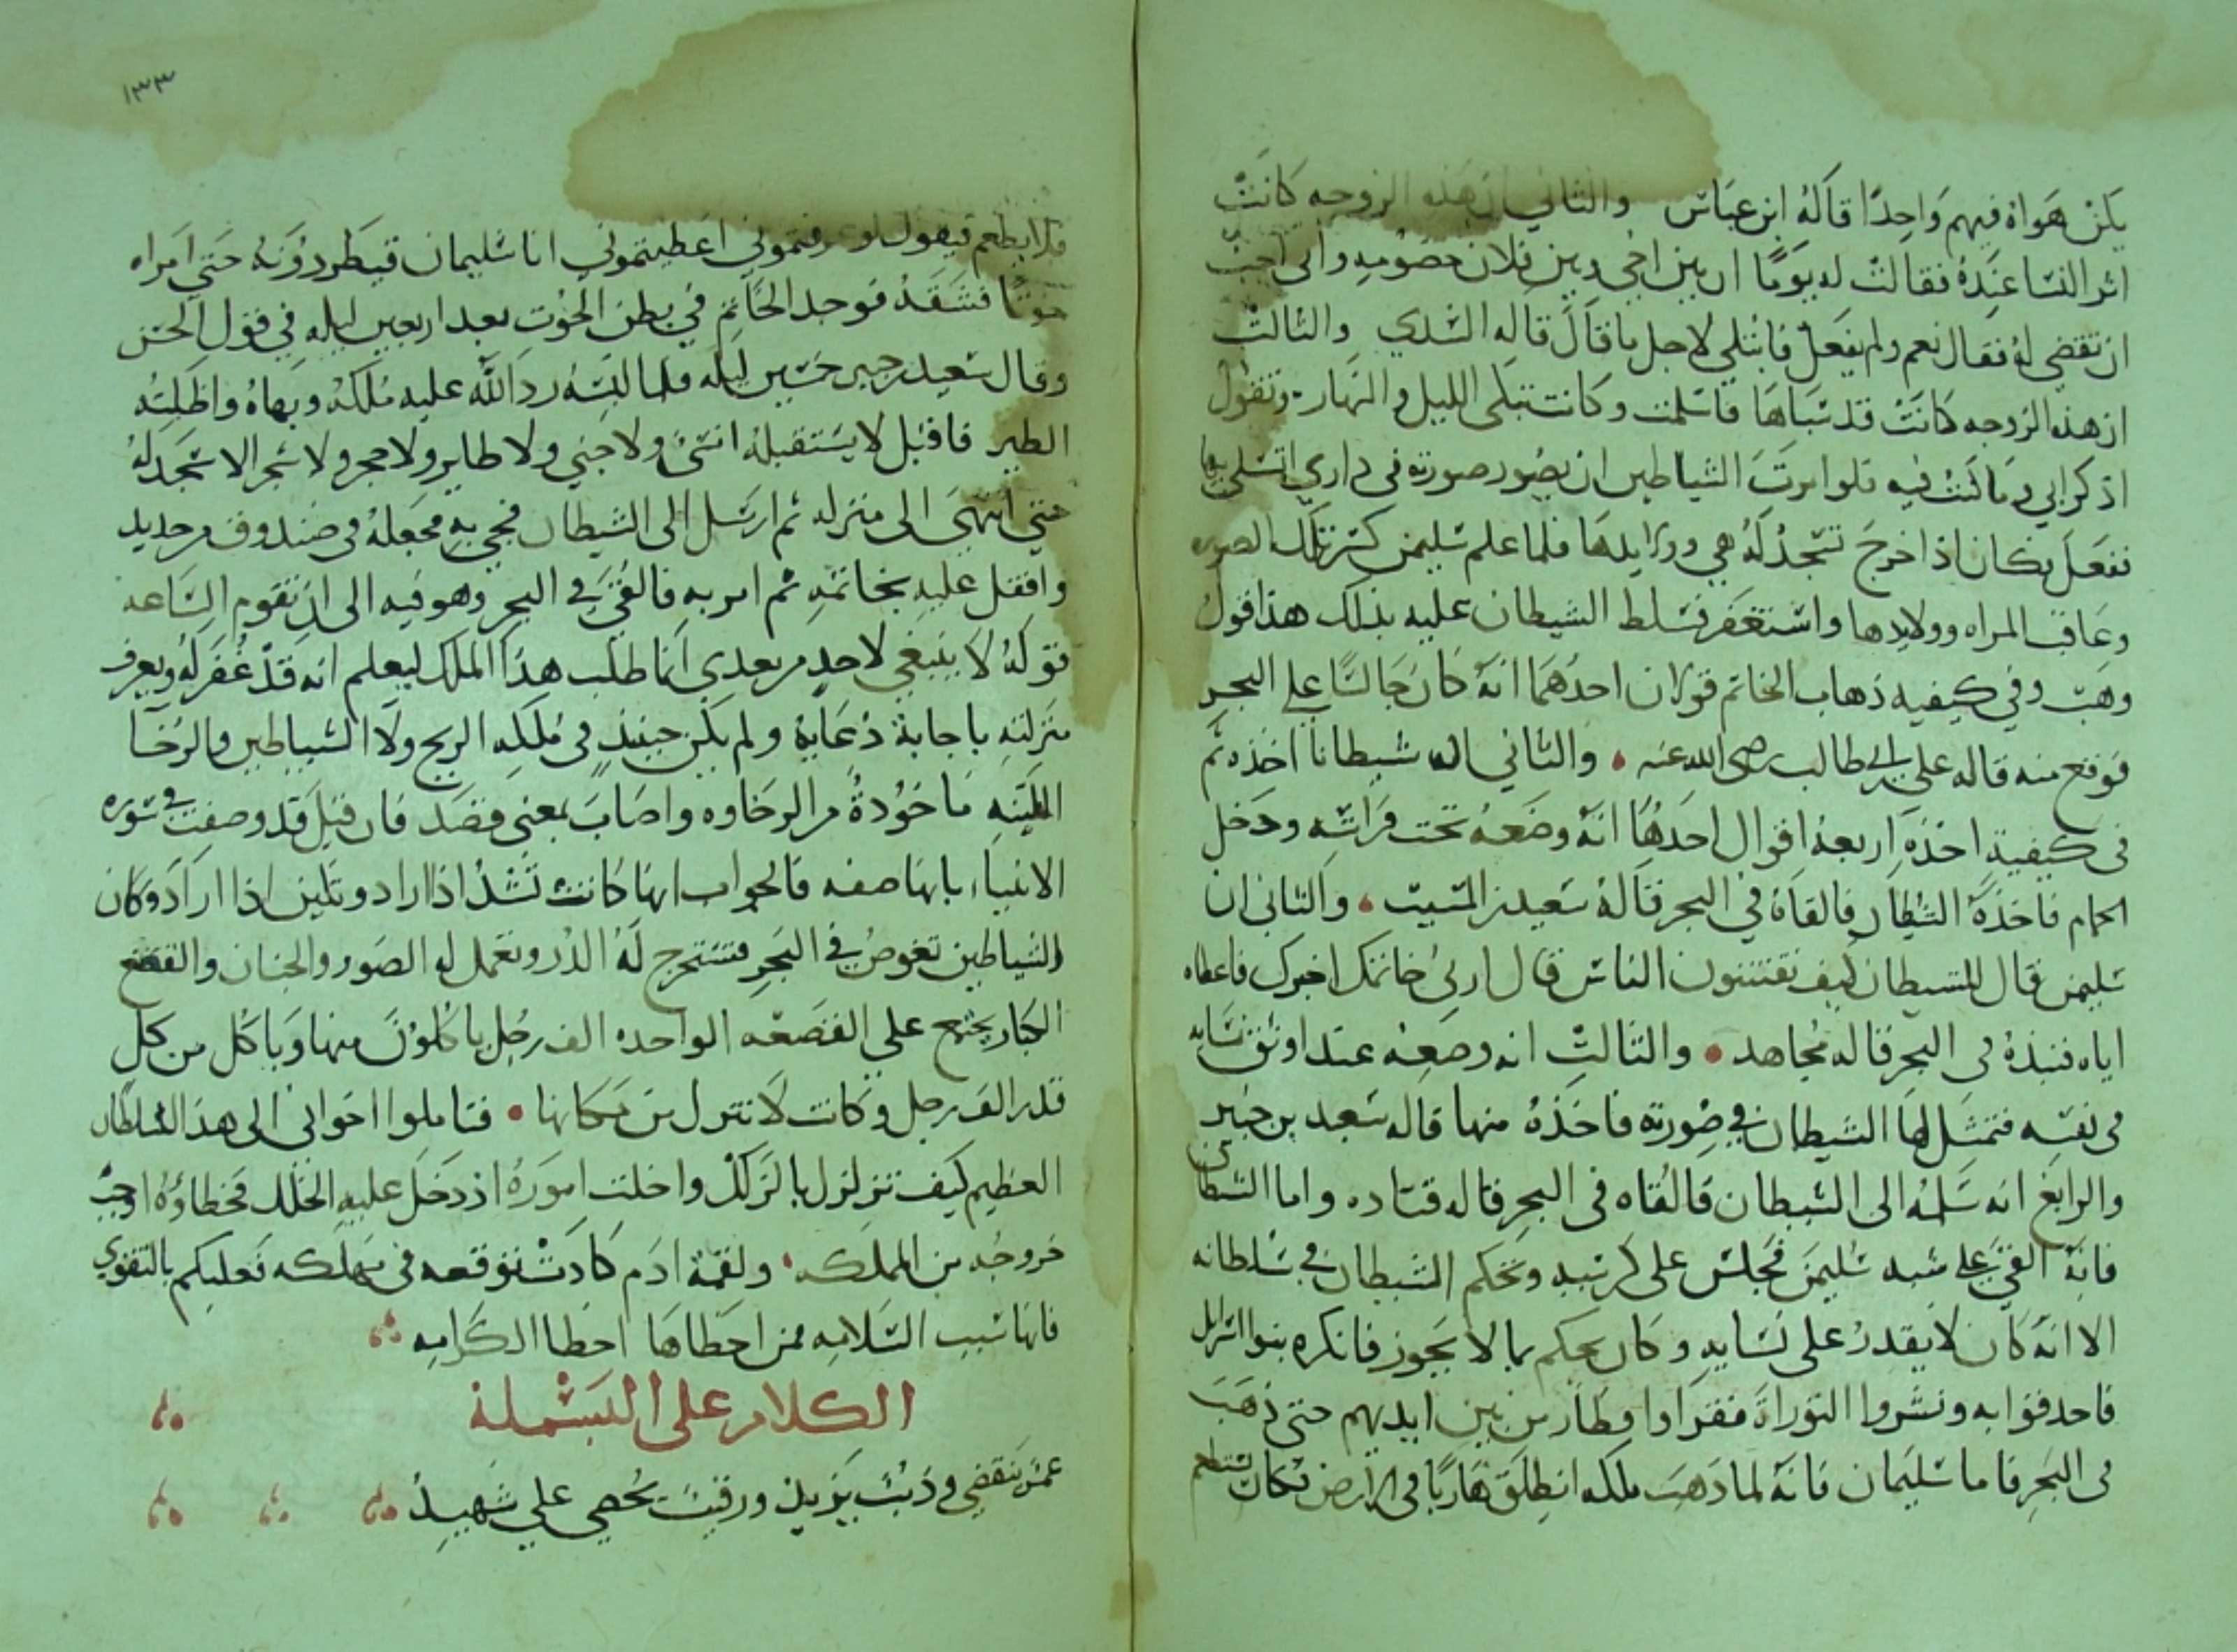 يكن هواه فيهم واحدا قاله ابن عباس والثاني ان هذه الزوجه كانت
اثر النسا عنده فقالت له يوما ان بين اخي وبين فلان خصومه واني احب
ان تقضي له فقال نعم ولم يفعل فابتلي لاجل ما قال قاله السدي والثالث
ان هذه الزوجه كانت قد سباها فاسلمت وكانت تبكي الليل والنهار وتقول
اذكر ابي وما كنت فيه فلو امرت الشياطين ان يصور صورته في داري اتسلى بها
ففعل فكان اذا خرج تسجد له هي وولايدها فلما علم سليمن كسر تلك الصوره
وعاقب المراه وولايدها واستغفر فسلط الشيطان عليه بذلك هذا قول
وهب وفي كيفيه ذهاب الخاتم قولان احدهما انه كان جالسا على البحر
فوقع منه قاله علي بن ابي طالب رضى الله عنه والثاني ان شيطانا اخذه ثم
في كيفية اخذه اربعة اقوال احدها انه وضعه تحت فراشه ودخل
الحمام فاخذه الشيطان فالقاه في البحر قاله سعيد بن المسيب والثاني ان
سليمن قال للشيطان كيف تفتنون الناس قال ارني خاتمك اخبرك فاعطاه
اياه فنبذه في البحر قاله مجاهد والثالث انه وضعه عند اوثق نسايه
في نفسه فتمثل لها الشيطان في صورته فاخذه منها قاله سعيد بن جبير
والرابع انه سلمه الى الشيطان فالقاه في البحر قاله قتاده واما الشيطان
فانه القي عليه شبه سليمن فجلس على كرسيه وتحكم الشيطان في سلطانه
الا انه كان لا يقدر على نسايه وكان يحكم بما لا يجوز فانكره بنوا اسرايل
فاحدقوا به ونشروا التوراة فقراوا فطار من بين ايديهم حتى ذهب
في البحر فاما سليمان فانه لما ذهب ملكه انطلق هاربا في الارض فكان يستطعم
فلا يطعم فيقول لو عرفتموني اعطيتموني انا سليمان فيطردونه حتي امراه
حوتا فشقه فوجد الخاتم في بطن الحوت بعد اربعين ليله في قول الحسن
وقال سعيد بن جبير خمسين ليله فلما لبسه رد الله عليه ملكه وبهاه واظلته
الطير فاقبل لا يستقبله انسي ولا جني ولا طاير ولا حجر ولا شجر الا سجد له
حتي انتهى الى منزله ثم ارسل الى الشيطان فجي به فجعله في صندوق من حديد
واقفل عليه بخاتمه ثم امر به فالقي في البحر وهو فيه الى ان تقوم الساعه
قوله لا ينبغي لاحد من بعدي انما طلب هذا الملك ليعلم انه قد غفر له ويعرف
منزلته باجابة دعايه ولم يكن حينيذ في ملكه الريح ولا الشياطين والرخا
اللينه ماخوذة من الرخاوه واصاب بمعنى قصد فان قيل قد وصفت في سوره
الانبياء بانها عاصفه فالجواب انها كانت تشتد اذا اراد وتلين اذا اراد وكان
الشياطين تغوص في البحر فتستخرج له الدر وتعمل له الصور والجفان والقصع
الكبار يجتمع علي القصعه الواحده الف رجل ياكلون منها وياكل من كل
قدر الف رجل وكانت لا تنزل من مكانها فتاملوا اخواني الى هذا السلطان
العظيم كيف تزلزل بالزلل واختلت اموره اذ دخل عليه الخلل فخطاؤه اوجب
خروجه من المملكه ولقمة ادم كادت توقعه في مهلكه فعليكم بالتقوي
فانها سبب السلامه فمن اخطاها اخطا الكرامه
الكلام على البسملة
عمر ينقضي وذنب يزيد ورقيب يحصي علي شهيد
١٣٣